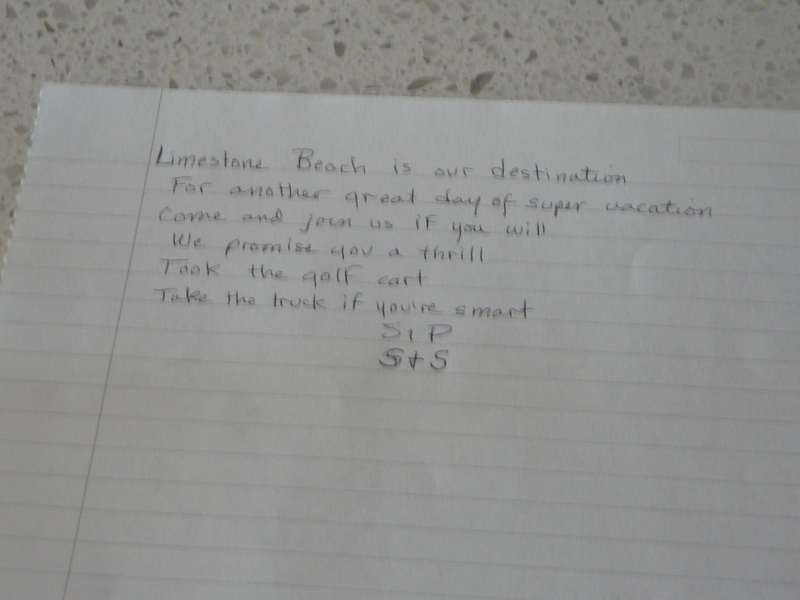 Limestone Beach is our destination
For another great day of super vacation
Come and join us if you will
We promise you a thrill
Took the golf cart
Take the truck if you're smart
S + P
S + S